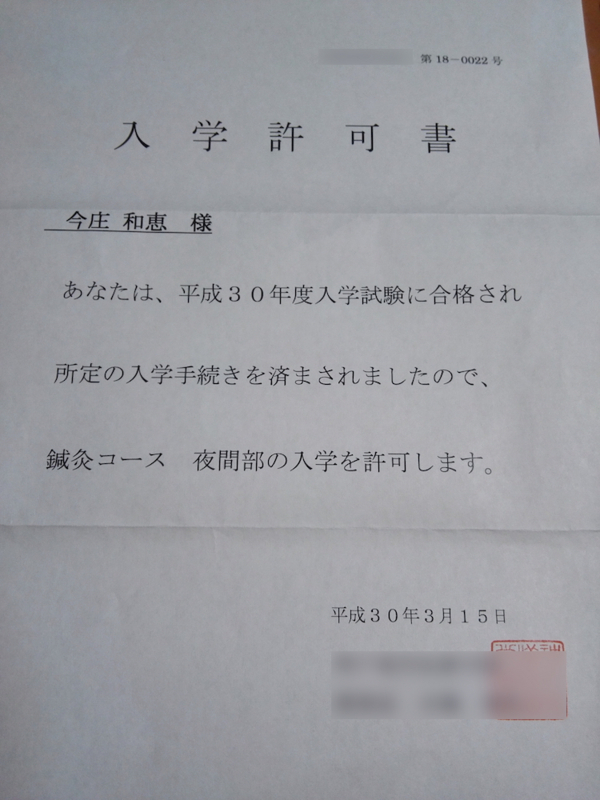 第18−0022号
入学許可書
今庄 和恵 様
あなたは、平成３０年度入学試験に合格され
所定の入学手続きを済まされましたので、
鍼灸コース　夜間部の入学を許可します。
平成３０年３月１５日